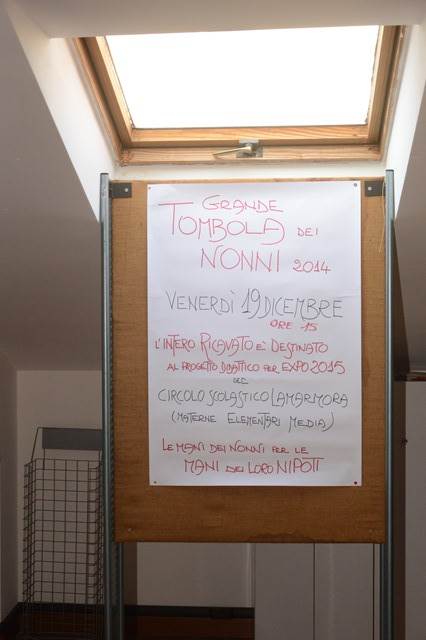 GRANDE
TOMBOLA DEI
NONNI 2014
VENERDÌ 19 DICEMBRE
ORE 15
L'INTERO RICAVATO E' DESTINATO
AL PROGETTO DIDATTICO PER EXPO 2015
DEL
CIRCOLO SCOLASTICO LAMARMORA
(MATERNE ELEMENTARI MEDIA)
LE MANI DEI NONNI PER LE
MANI DEI LORO NIPOTI